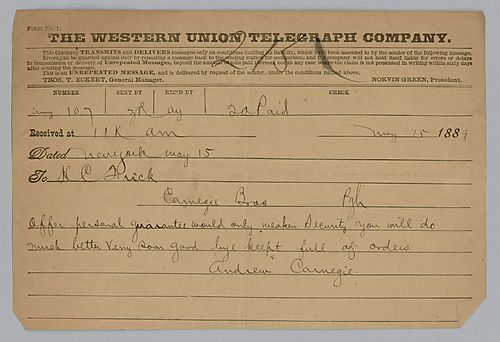 Form No. 1.
THE WESTERN UNION TELEGRAPH COMPANY.
This Company TRANSMITS and DELIVERS messages only on conditions limiting its liability, which have been assented to by the sender of the following message.
Errors can be guarded against only by repeating a message back to the sending station for comparison, and the company will not hold itself liable for errors or delays
in transmission or delivery of Unrepeated Messages, beyond the amount of tolls paid thereon, nor in any case where the claim is not presented in writing within sixty days
after sending the message.
This is an UNREPEATED MESSAGE, and is delivered by request of the sender, under the conditions named above.
THOS. T. ECKERT, General Manager. NORVIN GREEN, President.
NUMBER SENT BY REC'D BY CHECK
107 ay 20 Paid
Received at 11K am May 15 1889
Dated New york may 15
To H C Frick
Carnegie Bros Pgh
Offer personal guarantee would only weaken Security you will do
much better Very soon good bye keept full of orders
Andrew Carnegie.